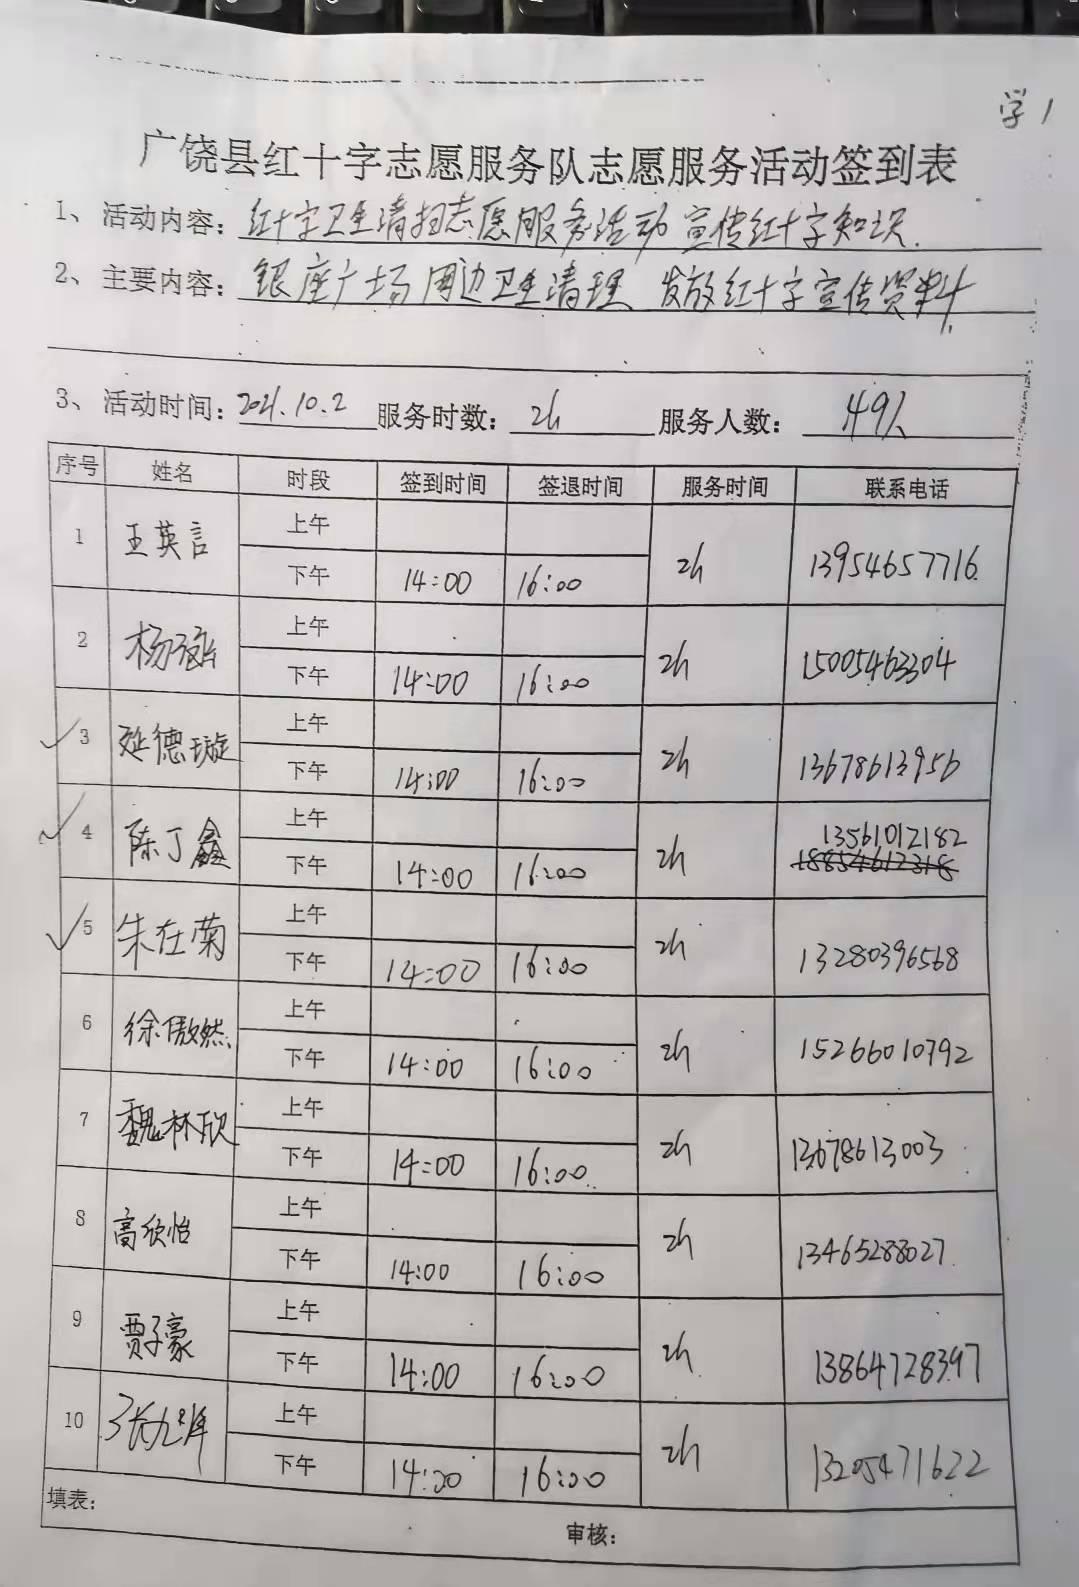 学1
广饶县红十字志愿服务队志愿服务活动签到表
1、活动内容：红十字卫生清扫志愿服务活动 宣传红十字知识.
2、主要内容：银座广场周边卫生清理 发放红十字宣传资料.
3、活动时间：2021.10.2 服务时数：2h 服务人数：49人
序号 姓名 时段 签到时间 签退时间 服务时间 联系电话
1 王英言 上午 2h 13954657716.
下午 14:00 16:00
2 杨 上午 2h 15005463304
下午 14:00 16:00
3 延德璇 上午 2h 13678613956
下午 14:00 16:00
4 陈丁鑫 上午 2h 13561012182
下午 14:00 16:00 18854612318
5 朱在菊 上午 2h 13280396568
下午 14:00 16:00
6 徐傲然 上午 2h 15266010792
下午 14:00 16:00
7 魏林欣 上午 2h 13678613003
下午 14:00 16:00
8 高欣怡 上午 2h 13465288027.
下午 14:00 16:00
9 贾子豪 上午 2h 13864728397
下午 14:00 16:00
10 张九 上午 2h 13205471622
下午 14:00 16:00
填表：
审核：